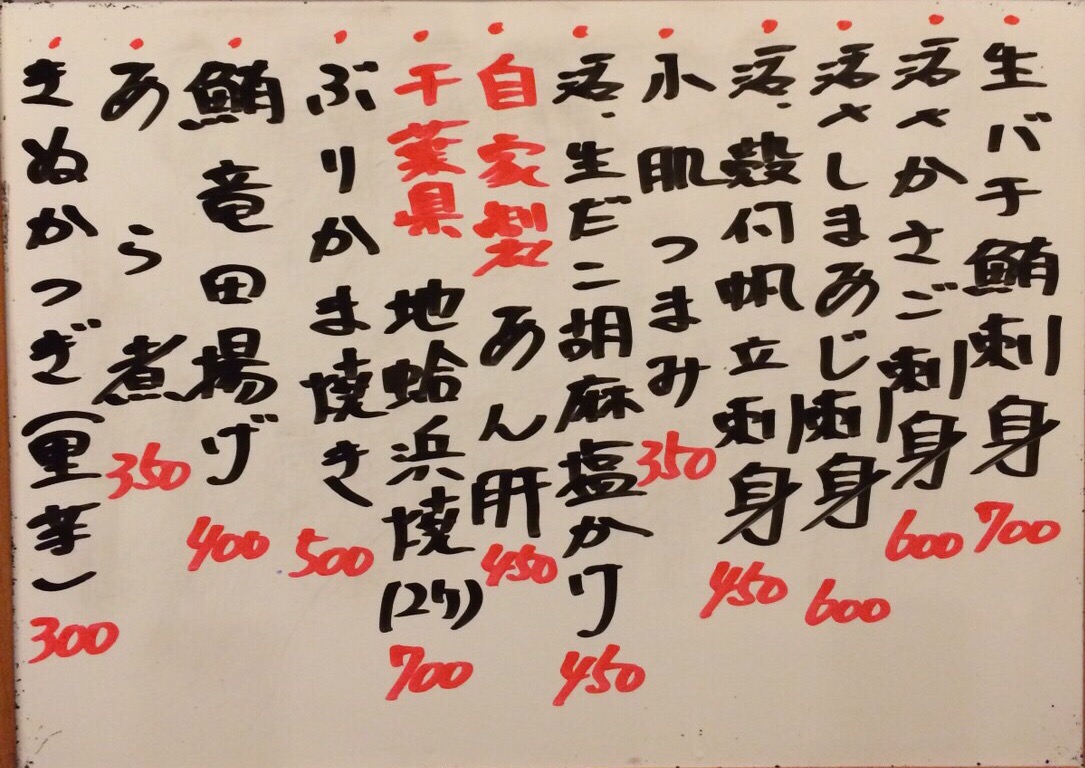 生バチ鮪刺身 700
活〆かさご刺身 600
活〆しまあじ刺身 600
活、殻付帆立刺身 450
小肌つまみ 350
活、生だこ胡麻塩かり 450
自家製 あん肝 450
千葉県 地蛤浜焼(2ケ) 700
ぶりかま焼き 500
鮪竜田揚げ 400
あら煮 350
きぬかつぎ(里芋) 300